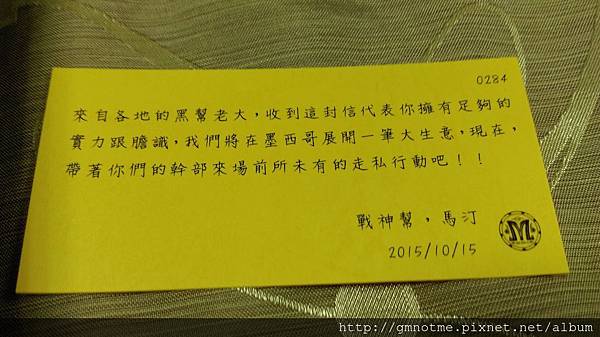 0284
來自各地的黑幫老大，收到這封信代表你擁有足夠的
實力跟膽識，我們將在墨西哥展開一筆大生意，現在，
帶著你們的幹部來場前所未有的走私行動吧！！
戰神幫，馬汀
M
2015/10/15
http://gmnotme.pixnet.net/album